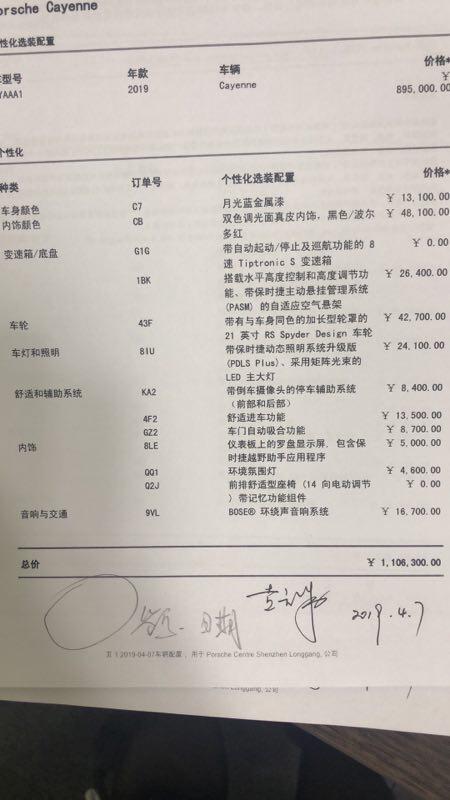 orsche Cayenne
性化选装配置
型号 年款 车辆 价格*
YAAA1 2019 Cayenne ￥ 895,000.00
个性化
种类 订单号 个性化选装配置 价格*
车身颜色 C7 月光蓝金属漆 ￥ 13,100.00
内饰颜色 CB 双色调光面真皮内饰，黑色/波尔 ￥ 48,100.00
多红
变速箱/底盘 G1G 带自动起动/停止及巡航功能的 8 ￥ 0.00
速 Tiptronic S 变速箱
1BK 搭载水平高度控制和高度调节功 ￥ 26,400.00
能、带保时捷主动悬挂管理系统
(PASM) 的自适应空气悬架
车轮 43F 带有与车身同色的加长型轮罩的 ￥ 42,700.00
21 英寸 RS Spyder Design 车轮
车灯和照明 8IU 带保时捷动态照明系统升级版 ￥ 24,100.00
(PDLS Plus)、采用矩阵光束的
LED 主大灯
舒适和辅助系统 KA2 带倒车摄像头的停车辅助系统 ￥ 8,400.00
（前部和后部）
4F2 舒适进车功能 ￥ 13,500.00
GZ2 车门自动吸合功能 ￥ 8,700.00
内饰 8LE 仪表板上的罗盘显示屏，包含保 ￥ 5,000.00
时捷越野助手应用程序
QQ1 环境氛围灯 ￥ 4,600.00
Q2J 前排舒适型座椅 (14 向电动调节 ￥ 0.00
) 带记忆功能组件
音响与交通 9VL BOSE® 环绕声音响系统 ￥ 16,700.00
总价 ￥ 1,106,300.00
日期 2019.4.7
页 1 2019-04-07车辆配置，用于 Porsche Centre Shenzhen Longgang, 公司
Longgang, 公司